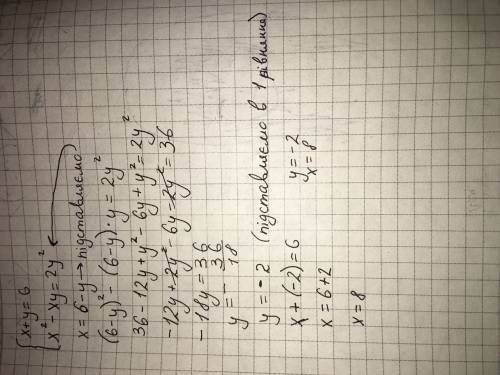 x+y=6
x²-xy=2y²
x=6-y→підставляємо)
(6-y)²-(6-y)·y=2y²
36-12y+y²-6y+y²=2y²
-12y+2y²-6y-2y²=36
-18y=36
y=-36/18
y=-2 (підставляємо в 1 рівняння)
x+(-2)=6
x=6+2
x=8
y=-2
x=8